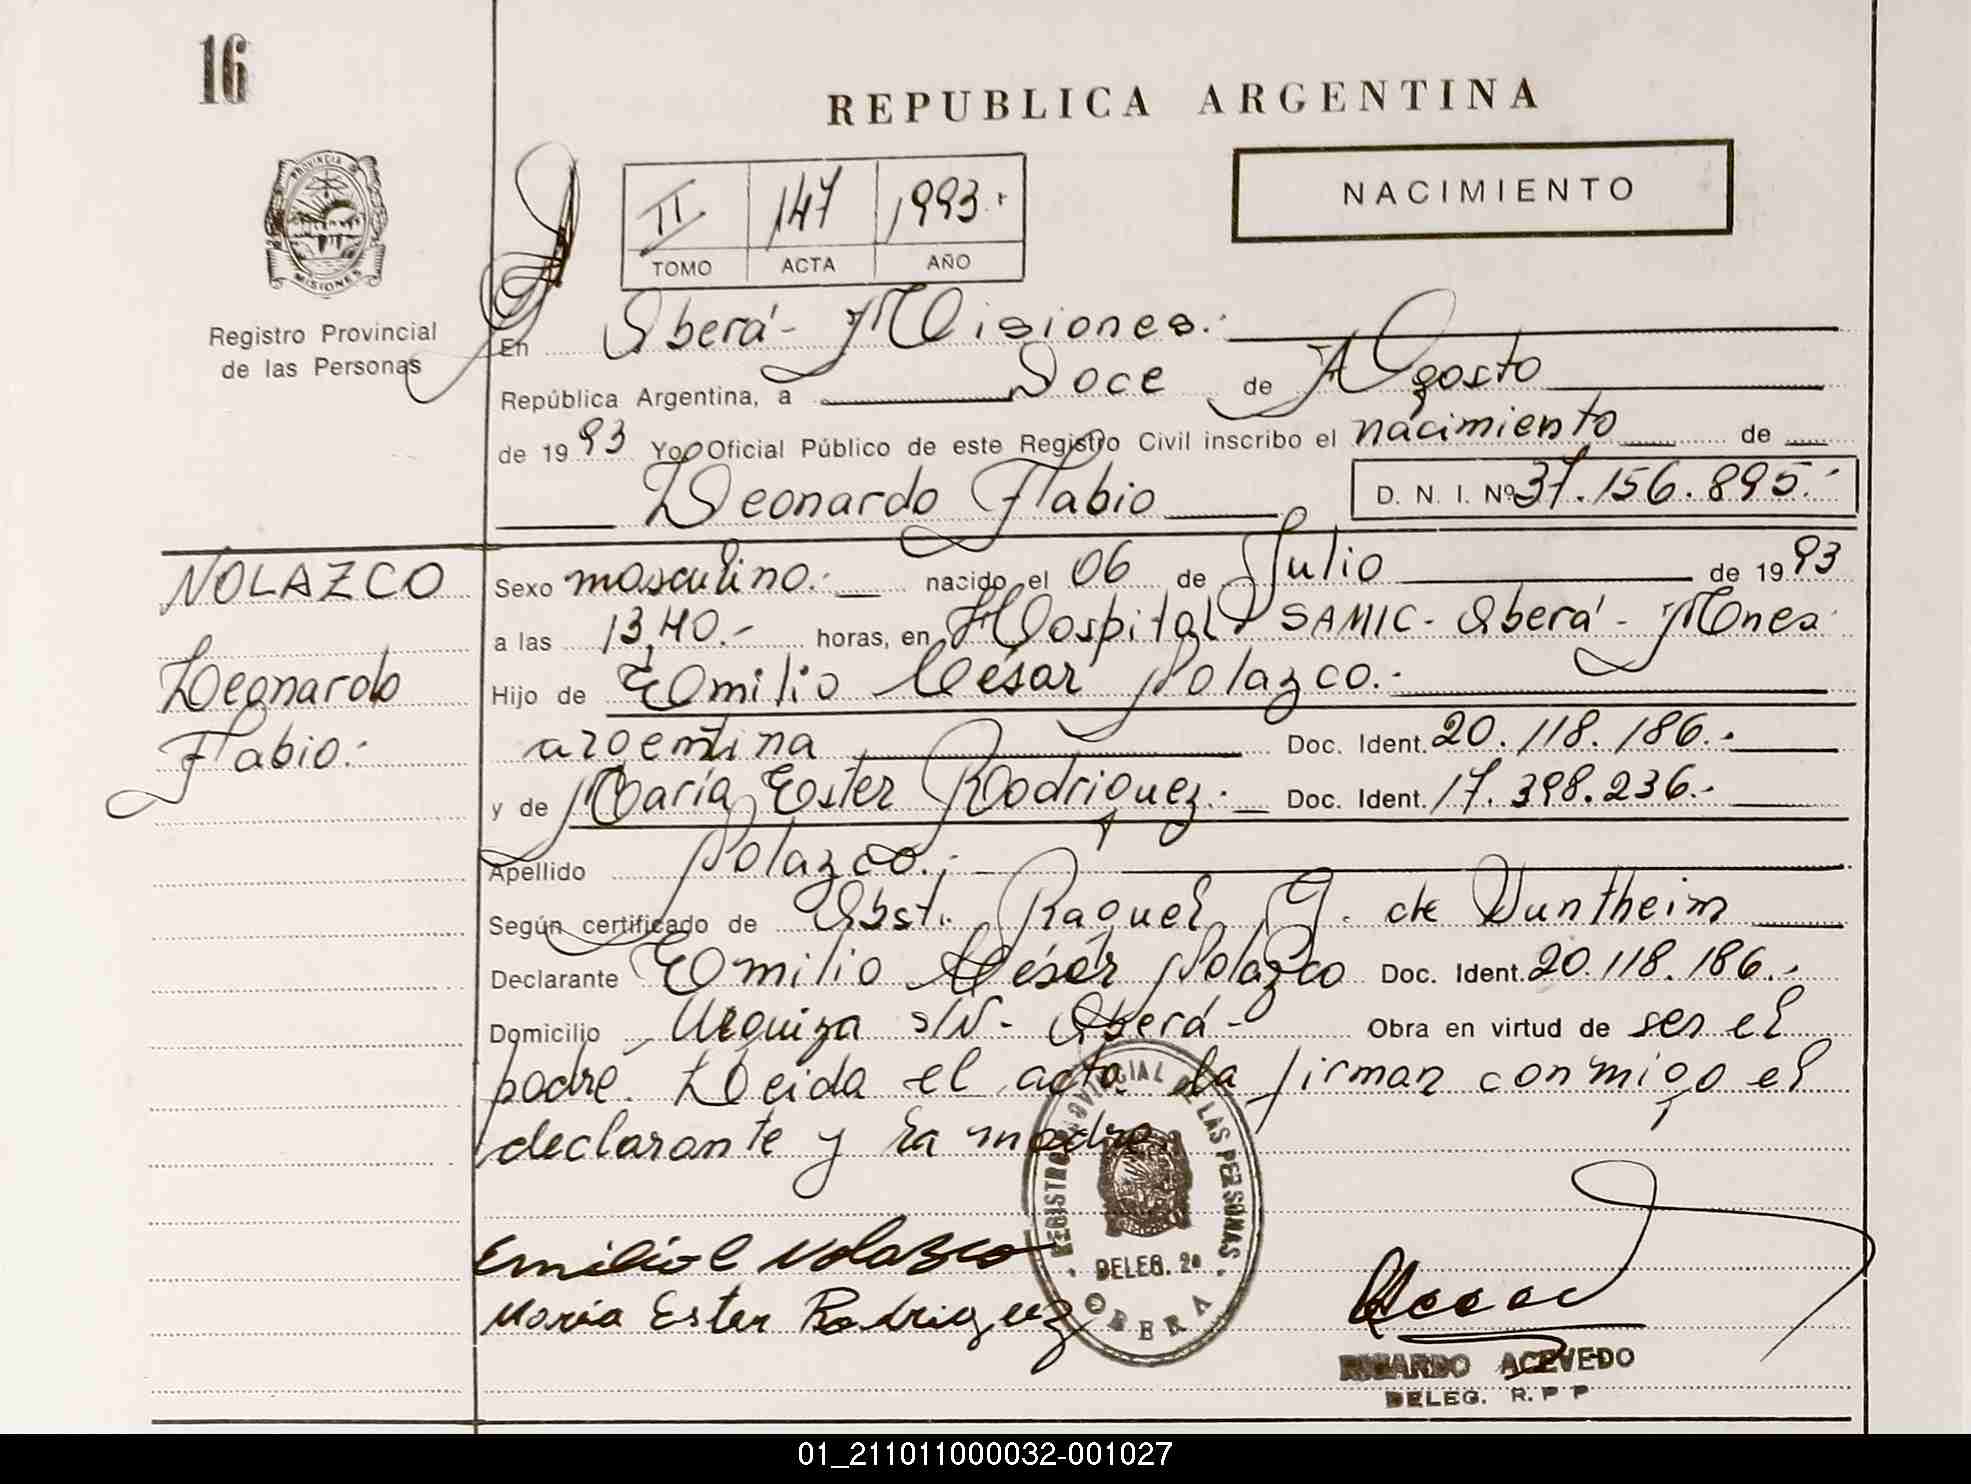 16
REPUBLICA ARGENTINA
NACIMIENTO
PROVINCIA DE
MISIONES
II 147 1993.-
TOMO ACTA AÑO
Registro Provincial
de las Personas
En Oberá - Misiones.-
República Argentina, a Doce de Agosto
de 1993 Yo, Oficial Público de este Registro Civil inscribo el nacimiento de
Leonardo Fabio D. N. I. Nº 37.156.895.-
NOLAZCO
Leonardo
Fabio.-
Sexo masculino.- nacido el 06 de Julio de 1993
a las 13,40.- horas, en Hospital SAMIC - Oberá - Mnes.
Hijo de Emilio César Nolazco.-
argentina Doc. Ident. 20.118.186.-
y de María Ester Rodriguez.- Doc. Ident. 17.398.236.-
Apellido Nolazco.-
Según certificado de Obst. Raquel G. de Duntheim
Declarante Emilio César Nolazco Doc. Ident. 20.118.186.-
Domicilio Urquiza s/N - Oberá - Obra en virtud de ser el
padre. Leida el acta la firman conmigo el
declarante y la madre.
REGISTRO PROVINCIAL DE LAS PERSONAS
DELEG. 2a
OBERA
Emilio C Nolazco
Maria Ester Rodriguez
RICARDO ACEVEDO
DELEG. R. P P
01_211011000032-001027